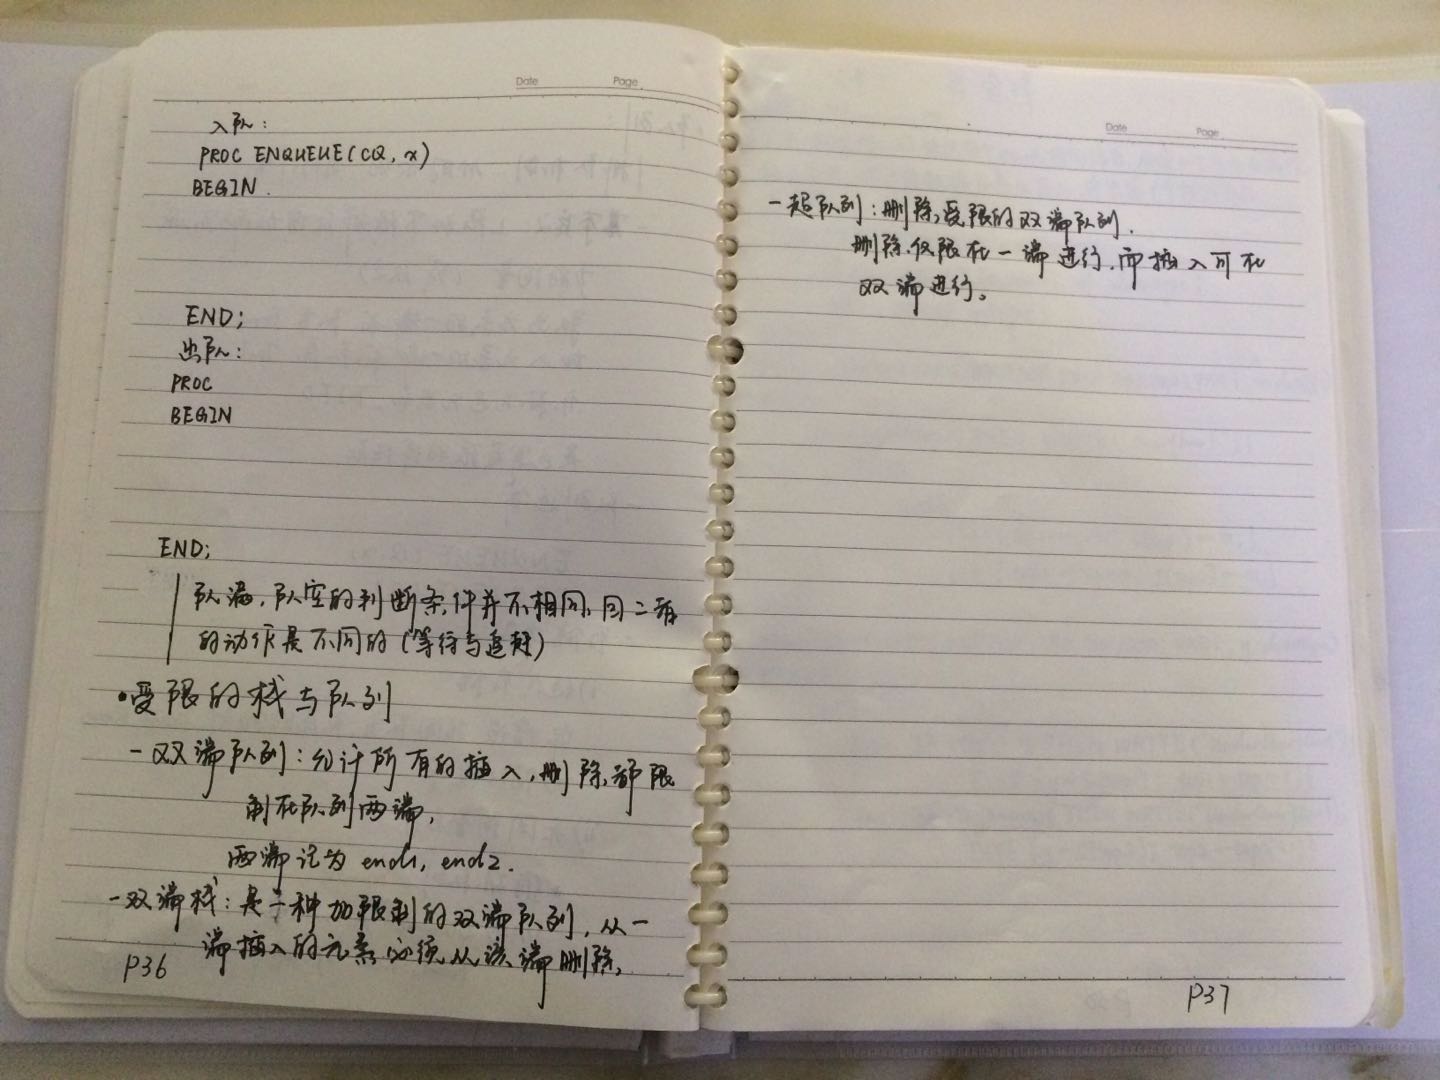 Date Page
入队:
PROC ENQUEUE(CQ, x)
BEGIN
END;
出队:
PROC
BEGIN
END;
队满,队空的判断条件并不相同,因二者
的动作是不同的(等待与追赶)
·受限的栈与队列
-双端队列:允许所有的插入,删除都限
制在队列两端,
两端记为 end1, end2.
-双端栈:是一种加限制的双端队列,从一
端插入的元素必须从该端删除。
P36
Date Page
-超队列:删除受限的双端队列.
删除仅限在一端进行,而插入可在
双端进行。
P37